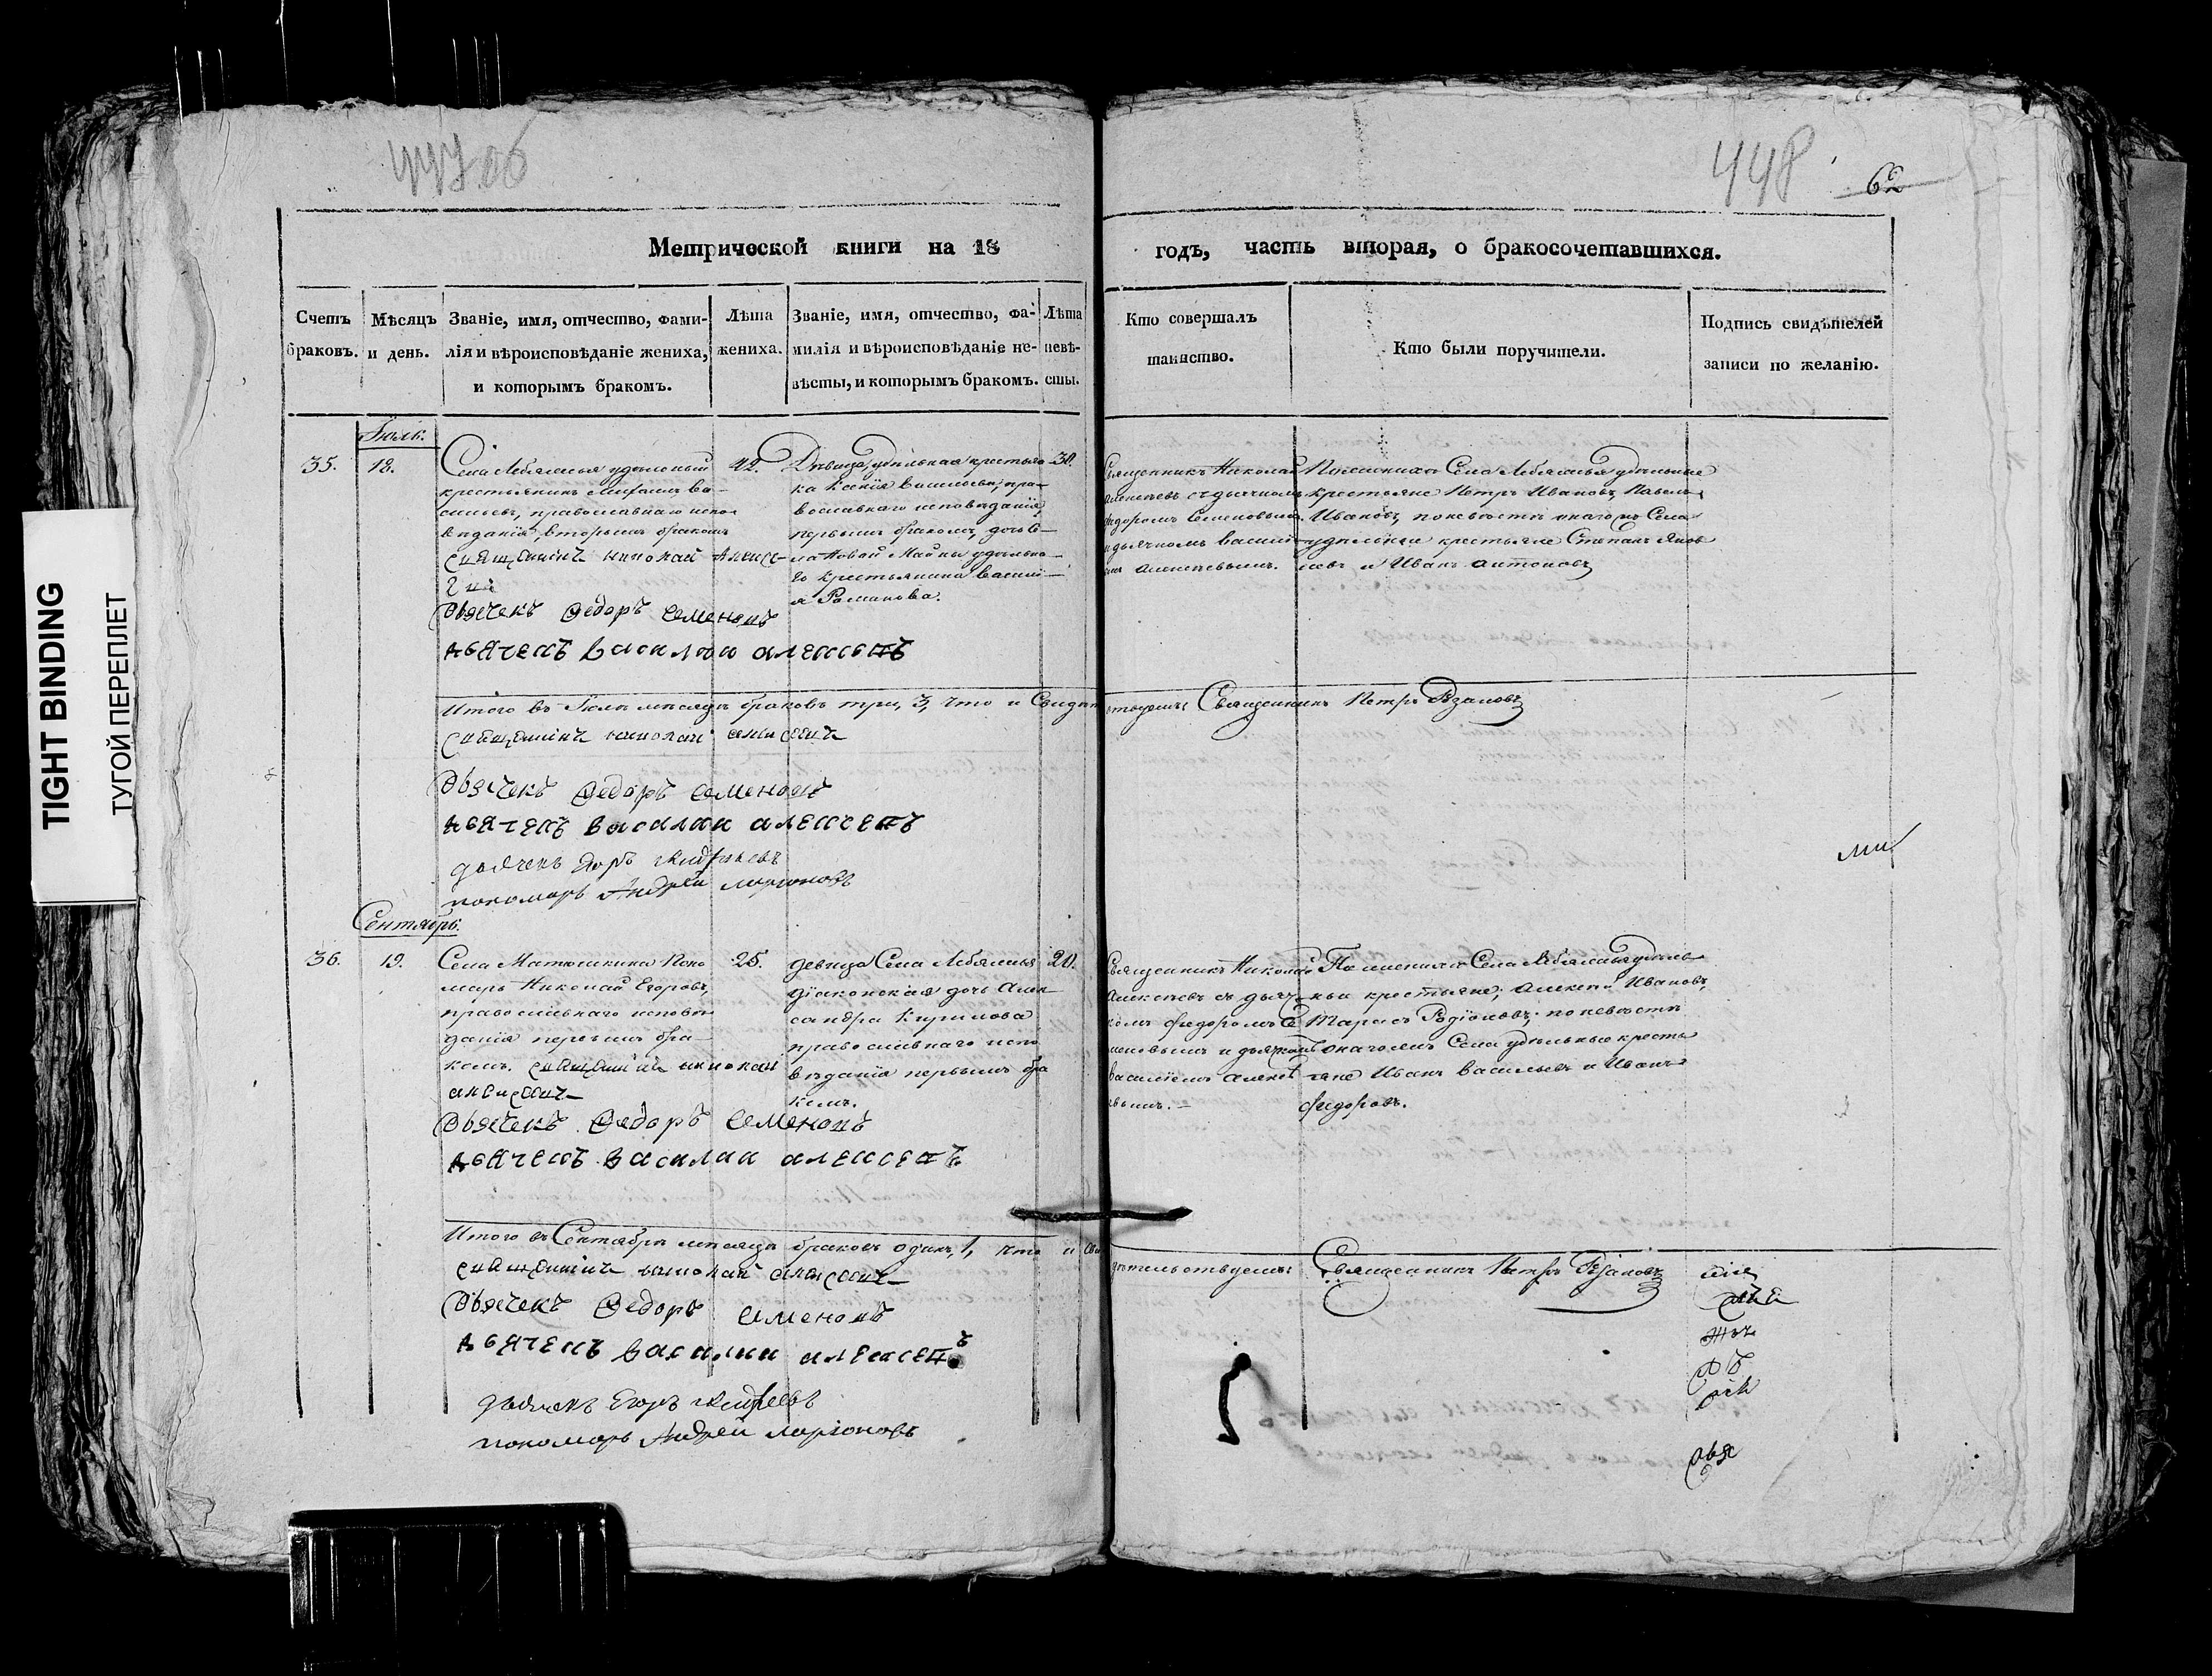 447 об
448
62
Метрической книги на 18 годъ, часть вторая, о бракосочетавшихся.
Счетъ браковъ.
Мѣсяцъ и день.
Званіе, имя, отчество, фами-
лія и вѣроисповѣданіе жениха,
и которымъ бракомъ.
Лѣта
жениха.
Званіе, имя, отчество, фа-
милія и вѣроисповѣданіе не-
вѣсты, и которымъ бракомъ.
Лѣта
невѣ-
сты.
Кто совершалъ
таинство.
Кто были поручители.
Подпись свидѣтелей
записи по желанію.
TIGHT BINDING
ТУГОЙ ПЕРЕПЛЕТ
Іюль.
35.
18.
Села Лебяжья удѣльный
крестьянинъ Михаилъ Ва-
сильевъ, православнаго испо-
вѣданія, вторымъ бракомъ
священникъ николай алексе-
евъ
дьячекъ Федоръ Семеновъ
дьячекъ василии алексеевъ
42.
Дѣвица, удѣльная крестьян-
ка Ксенія Васильева, пра-
вославнаго исповѣданія,
первымъ бракомъ, дочь Се-
ла Новой Майны удѣльна-
го крестьянина Василі-
я Романова.
30.
Священникъ Николай
Алексѣевъ съ дьячкомъ
Федоромъ Семеновымъ
и дьячкомъ Васильемъ
Алексѣевымъ.
По женихѣ Села Лебяжья удѣльные
крестьяне Петръ Ивановъ, Павелъ
Ивановъ, по невѣстѣ онаго жъ Села
удѣльные крестьяне Степанъ Яков-
левъ и Иванъ Антоновъ
Итого въ Іюлѣ мѣсяцѣ браковъ три, 3, что и Свидѣтельствуемъ: Священникъ Петръ Рѣзановъ
священникъ николай алексеевъ
дьячекъ Федоръ Семеновъ
дьячекъ василии алексеевъ
дьячекъ Егоръ
пономарь Андрей Ларионовъ
Сентябрь.
36.
19.
Села Матюшкина Поно-
марь Николай Егоровъ,
православнаго исповѣ-
данія первымъ бра-
комъ. священникъ николай
алексеевъ
дьячекъ Федоръ Семеновъ
дьячекъ василии алексеевъ
25.
девица Села Лебяжья
діаконская дочь Алек-
сандра Кирилова
православнаго испо-
вѣданія первымъ бра-
комъ.
20.
Священникъ Николай
Алексѣевъ съ дьяч-
комъ Федоромъ Се-
меновымъ и дьячкомъ
Василіемъ Алексѣ-
евымъ.
По женихѣ Села Лебяжья удѣль-
ныя крестьяне; Алексѣй Ивановъ,
Тарасъ Родіоновъ; по невѣстѣ
онаго жъ Села удѣльные кресть-
яне Иванъ Васильевъ и Иванъ
Федоровъ.
Итого въ Сентябрѣ мѣсяцѣ браковъ одинъ, 1, что и свидѣтельствуемъ: Священникъ Петръ Рѣзановъ
священникъ николай алексеевъ
дьячекъ Федоръ Семеновъ
дьячекъ василии алексеевъ
дьячекъ Егоръ
пономарь Андрей Ларионовъ